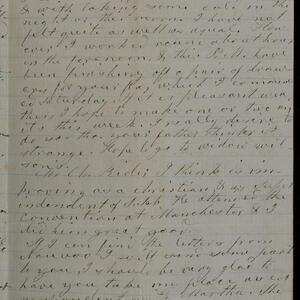 & with taking some cold in the
night or this morn. I have not
felt quite as well as usual. How
ever I worked round about house
in the forenoon, & this P.M. have
been finishing off a pair of draw
ers for your pa, which I commenc
ed Saturday. If it is pleasant wea
ther I hope to make one or two vis
its this week. I really desire to
do so tho your father thinks it
strange. Hope to go to widow Wil
son's.
Mr Ch. I think is im
proving as a christian, & as
independent of He attended the
Convention at Manchester & I
did him great good.
If I can find the letters from
I will send some part
to you. I should be very glad
have you take my place as cor
Martha. She